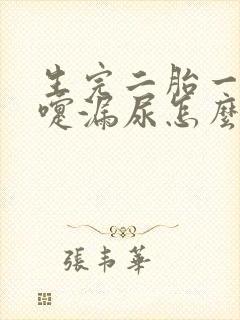 生完二胎一
嚏漏尿怎麼
張韋華